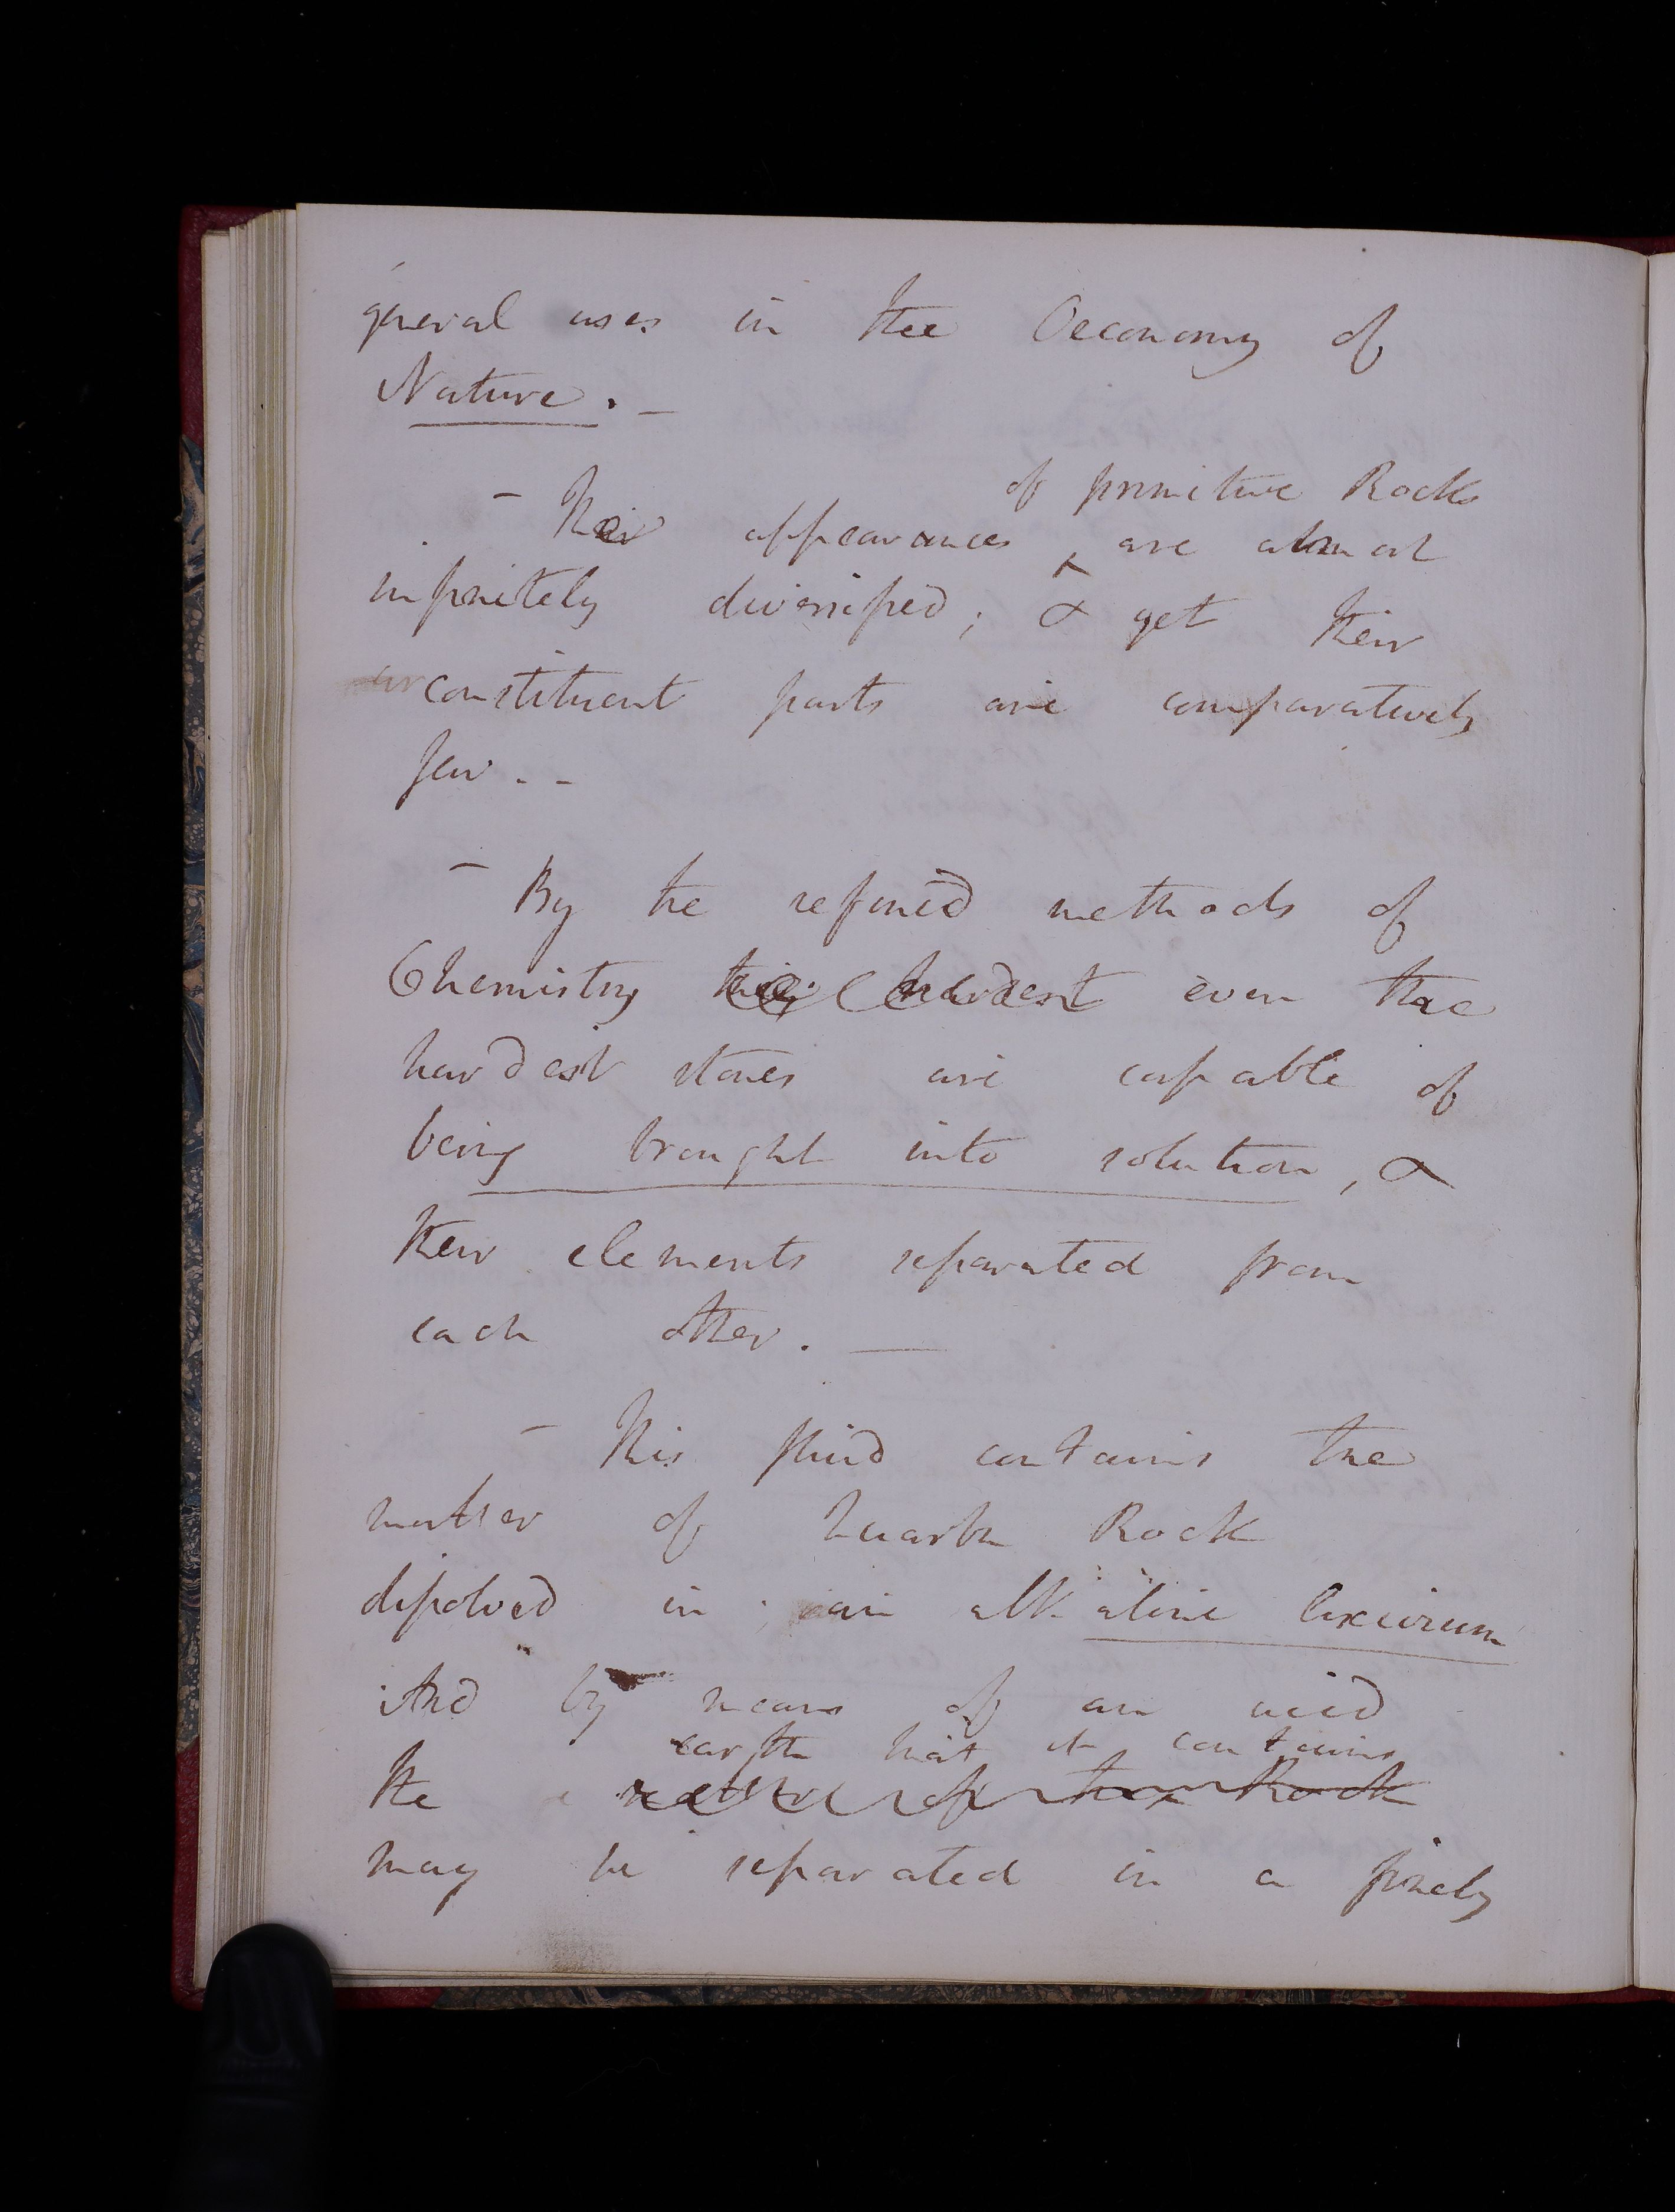 general uses in the Oeconomy of
Nature. _
of primitive Rocks
- The appearances ^ are almost
infinitely diversified; & yet their
constituent parts are comparatively
few. _
- By the refined methods of
Chemistry hardest even the
hardest stones are capable of
being brought into solution, &
their elements separated from
each other. _
- This fluid contains the
matter of Quartz Rock
dissolved in an alkaline lixivium
And by means of an acid
earth that it contains
the matter of the Rock
may be separated in a finely